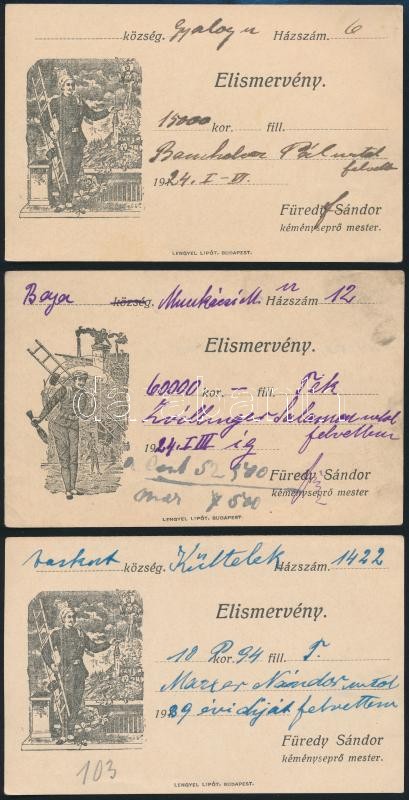 község. Gyalog u Házszám. 6
Elismervény.
15000 kor. fill.
Pál úrtól
felvett
1924. I-VI.
Füredy Sándor
kéményseprő mester.
LENGYEL LIPÓT, BUDAPEST.
Baja község. Munkácsi M. u Házszám 12
Elismervény.
60000 kor. — fill. Ték
Zvillinger Salamon úrtól
1924. I III ig felvettem
52 500
Füredy Sándor
már 7 500
kéményseprő mester
LENGYEL LIPÓT, BUDAPEST.
vaskut község. Kültelek Házszám. 1422
Elismervény.
10 P kor. 94 fill. T.
Nándor úrtól
1939 évi díját felvettem
Füredy Sándor
kéményseprő mester.
103
LENGYEL LIPÓT, BUDAPEST.
darabanth.com